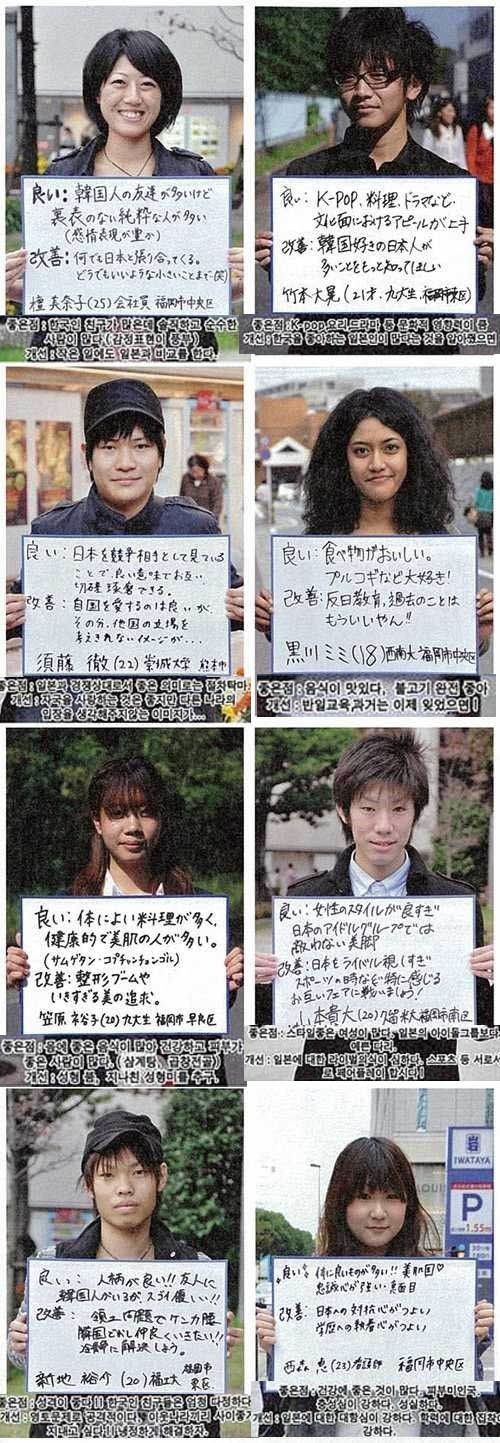 良い：韓国人の友達が多いけど
裏表のない純粋な人が多い
(感情表現が豊か)
改善：何でも日本と張り合ってくる。
どうでもいいような小さいことまで(笑)
檀 美奈子(25)会社員 福岡市中央区
좋은점 : 한국인 친구가 많은데 솔직하고 순수한
사람이 많다(감정표현이 풍부)
개선 : 작은 일에도 일본과 비교를 한다.
良い：K-POP、料理、ドラマなど、
文化面におけるアピールが上手
改善：韓国好きの日本人が
多いことをもっと知ってほしい
竹本大晃(21才、九大生、福岡市東区)
좋은점 : K-pop,요리,드라마 등 문화적 영향력이 큼
개선 : 한국을 좋아하는 일본인이 많다는 것을 알아줬으면
良い：日本を競争相手として見ている
ことで、良い意味でお互い
切磋琢磨できる。
改善：自国を愛するのは良いが、
その分、他国の立場を
考えきれないイメージが…
須藤 徹(22)崇城大学 熊本市
좋은점 : 일본과 경쟁상대로서 좋은 의미로는 절차탁마.
개선 : 자국을 사랑하는 것은 좋지만 다른 나라의
입장을 생각해주지않는 이미지가...
良い：食べ物がおいしい。
プルコギなど大好き!
改善：反日教育、過去のことは
もういいやん!!
黒川ミミ(18)西南大 福岡市中央区
좋은점 : 음식이 맛있다, 불고기 완전 좋아
개선 : 반일교육,과거는 이제 잊었으면!
良い：体によい料理が多く、
健康的で美肌の人が多い。
(サムゲタン・コプチャンチョンゴル)
改善：整形ブームや
いきすぎる美の追求。
笠原 裕子(20)九大生 福岡市早良区
좋은점 : 몸에 좋은 음식이 많아 건강하고 피부가
좋은 사람이 많다. (삼계탕, 곱창전골)
개선 : 성형 붐, 지나친 성형미를 추구.
良い：女性のスタイルが良すぎ
日本のアイドルグループでは
敵わない美脚
改善：日本をライバル視しすぎ
スポーツの時などで特に感じる
お互いフェアに戦いましょう!
山本貴大(20)久留米大 福岡市南区
좋은점 : 스타일좋은 여성이 많다. 일본의 아이돌그룹보다
예쁜 다리.
개선 : 일본에 대한 라이벌의식이 심하다. 스포츠 등 서로서
로 페어플레이 합시다!
良い：人柄が良い!!友人に
韓国人がいるがスゴイ優しい!!
改善：領土問題でケンカ腰
隣国どおし仲良くいきたい!!
冷静に解決しよう。
新地 裕介(20)福工大 福岡市
東区
좋은점 : 성격이 좋다!! 한국인 친구들은 엄청 다정하다
개선 : 영토문제로 공격적이다. 이웃나라끼리 사이좋게
지내고 싶다!! 냉정하게 해결하자.
良い：体に良いものが多い!!美肌国♡
忠誠心が強い・真面目
改善：日本への対抗心がつよい
学歴への執着心がつよい
西森 恵(23)看護師 福岡市中央区
좋은점 : 건강에 좋은 것이 많다. 피부미인국.
충성심이 강하다, 성실하다.
개선 : 일본에 대한 대항심이 강하다. 학력에 대한 집착이
강하다.
岩
IWATAYA
P
1.55m